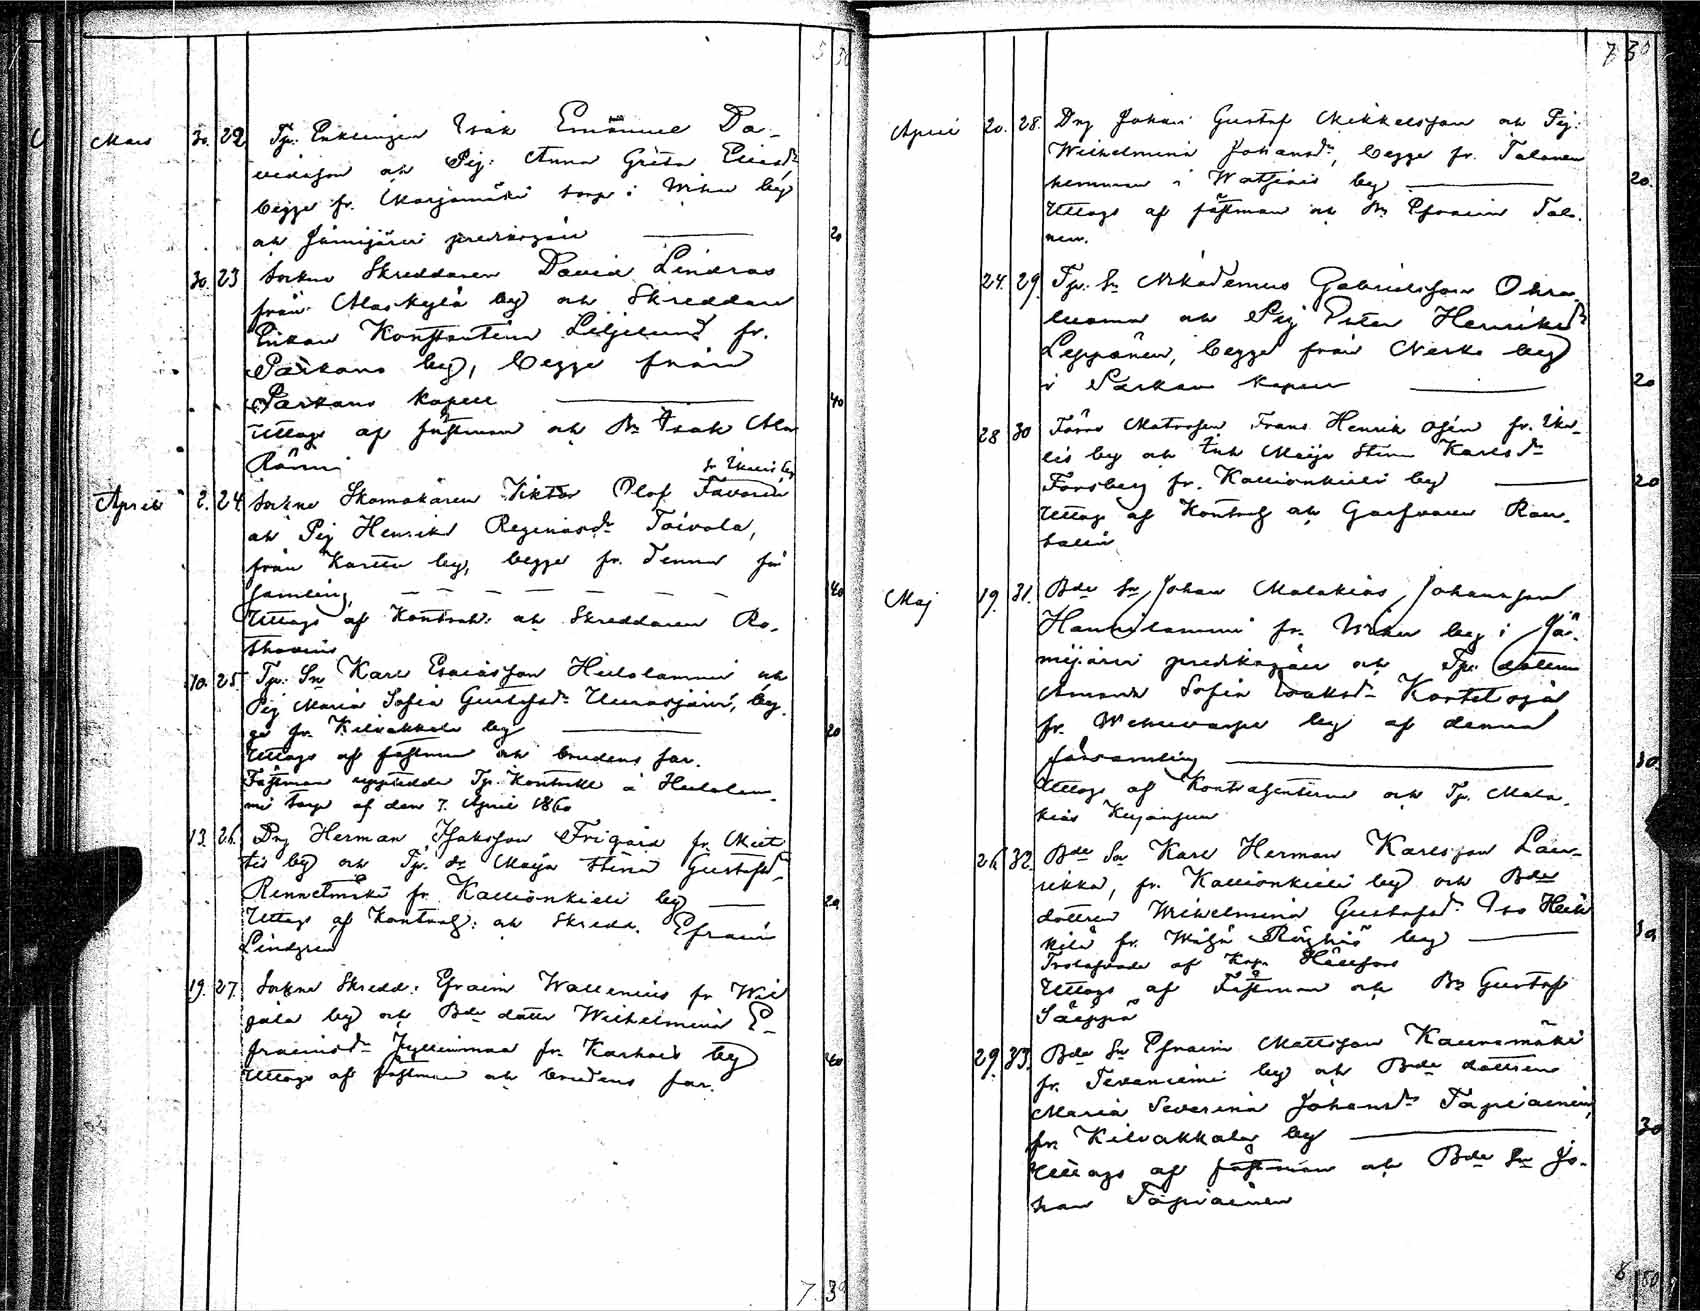 5 30
Mars 30. 22 Tp: Enklingen Isak Emanuel Da-
vidsson och Pig: Anna Greta Eliasdr
begge fr. Marjamäki torp i Wihu by
och Jämijärvi predikogäll 20
30. 23 Sockne Skreddaren David Lindroos
från Alaskylä by och Skreddare
Enkan Konstantina Liljelund fr.
Parkano by, begge från
Parkano kapell 40
Uttogs af fästman och Bn Isak Ala
Ränni
fr Ikalis by
April 2. 24. Sockne Skomakaren Viktor Olof Favorin
och Pig Henrika Reginasdr Toivola,
från Kartu by, begge fr. denna för
samling, 40
Uttogs af Kontrah: och Skreddaren Ro-
10. 25 Tp: Sn Karl Esaiasson Hulolammi och
Pig Maria Sofia Gustafsdr Uurasjärvi, beg-
ge fr. Kilvakkala by 20
Uttogs af fästman och brudens far.
Fästman uppvisade Tp. Kontrakt å Hulolam-
mi torp af den 7. April 1860
13. 26. Dng Herman Isaksson Frigård fr. Miet-
tis by och Tp. dr Maija Stina Gustafsdr
Rennelmäki fr. Kallionkieli by 20
Uttogs af Kontrah: och Skredd. Efraim
Lindgren
19. 27. Sockne Skredd: Efraim Wallenius fr. Wil
jala by och Bde dotter Wilhelmina E-
fraimsdr Jyllinmaa fr. Karhois by 40
Uttogs af fästman och brudens far.
7. 30
7 30
April 20. 28. Dng Johan Gustaf Mikkelsson och Pig:
Wilhelmina Johansdr, begge fr. Talonen
hemman i Watsiais by 20.
Uttogs af fästman och Bn Efraim Talo-
nen.
24. 29. Tp. Sn Nikodemus Gabrielsson Ohra
luoma och Pig Ester Henriksdr
Leppänen, begge från Nerko by
i Parkano kapell 20
28 30 Förre Matrosen Frans Henrik Osén fr. Ika-
lis by och Enk Maija Stina Karlsdr
Forsberg fr. Kallionkieli by 20
Uttogs af Kontrah och Garfvaren Ran-
salin
Maj 19. 31. Bde Sn Johan Malakias Johansson
Hannilammi fr. Wihu by i Jä-
mijärvi predikogäll och Tp: dottern
Amanda Sofia Isaksdr Kortetoja
fr. Wehuvarpe by af denna
församling 30.
Uttogs af Kontrahenterna och Tp. Mala-
kias
26. 32. Bde Sn Karl Herman Karlsson Lau-
rikka, fr. Kallionkieli by och Bde
dottren Wilhelmina Gustafsdr Iso Heik
kilä fr. Wähä Röyhiö by 30
Trolofvade af Kap. Hällfors
Uttogs af Fästman och Bn Gustaf
Säippä
29. 33. Bde Sn Efraim Mattsson Kaunamäki
fr. Tevaniemi by och Bde dottren
Maria Severina Johansdr Tapiainen,
fr. Kilvakkala by 30
Uttogs af fästman och Bde Sn Jo-
han Tapiainen
8 80